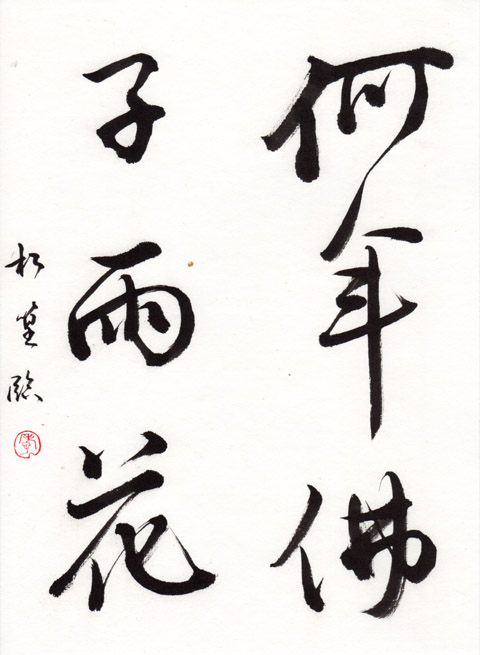 何年佛
子雨花
松堂臨